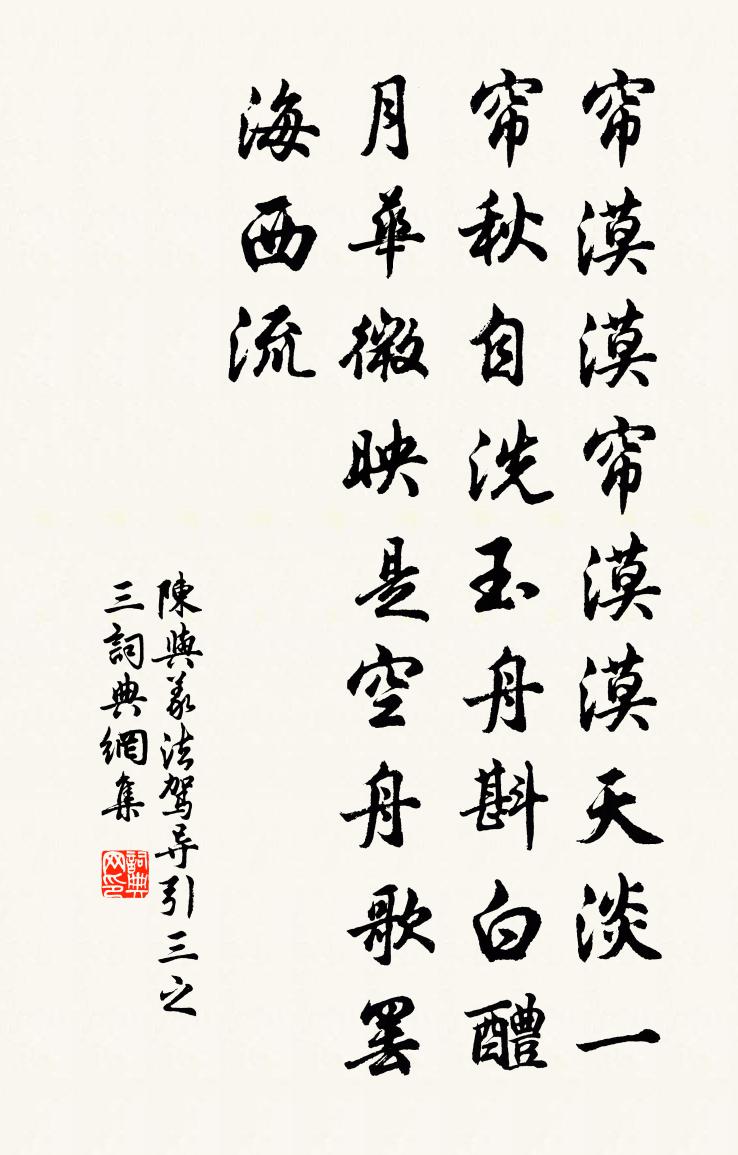 帘漠漠帘漠漠天淡一
帘秋自洗玉舟斟白醴
月華微映是空舟歌罷
海西流
陳與義法駕导引三之
三詞典網集
詞典
网印